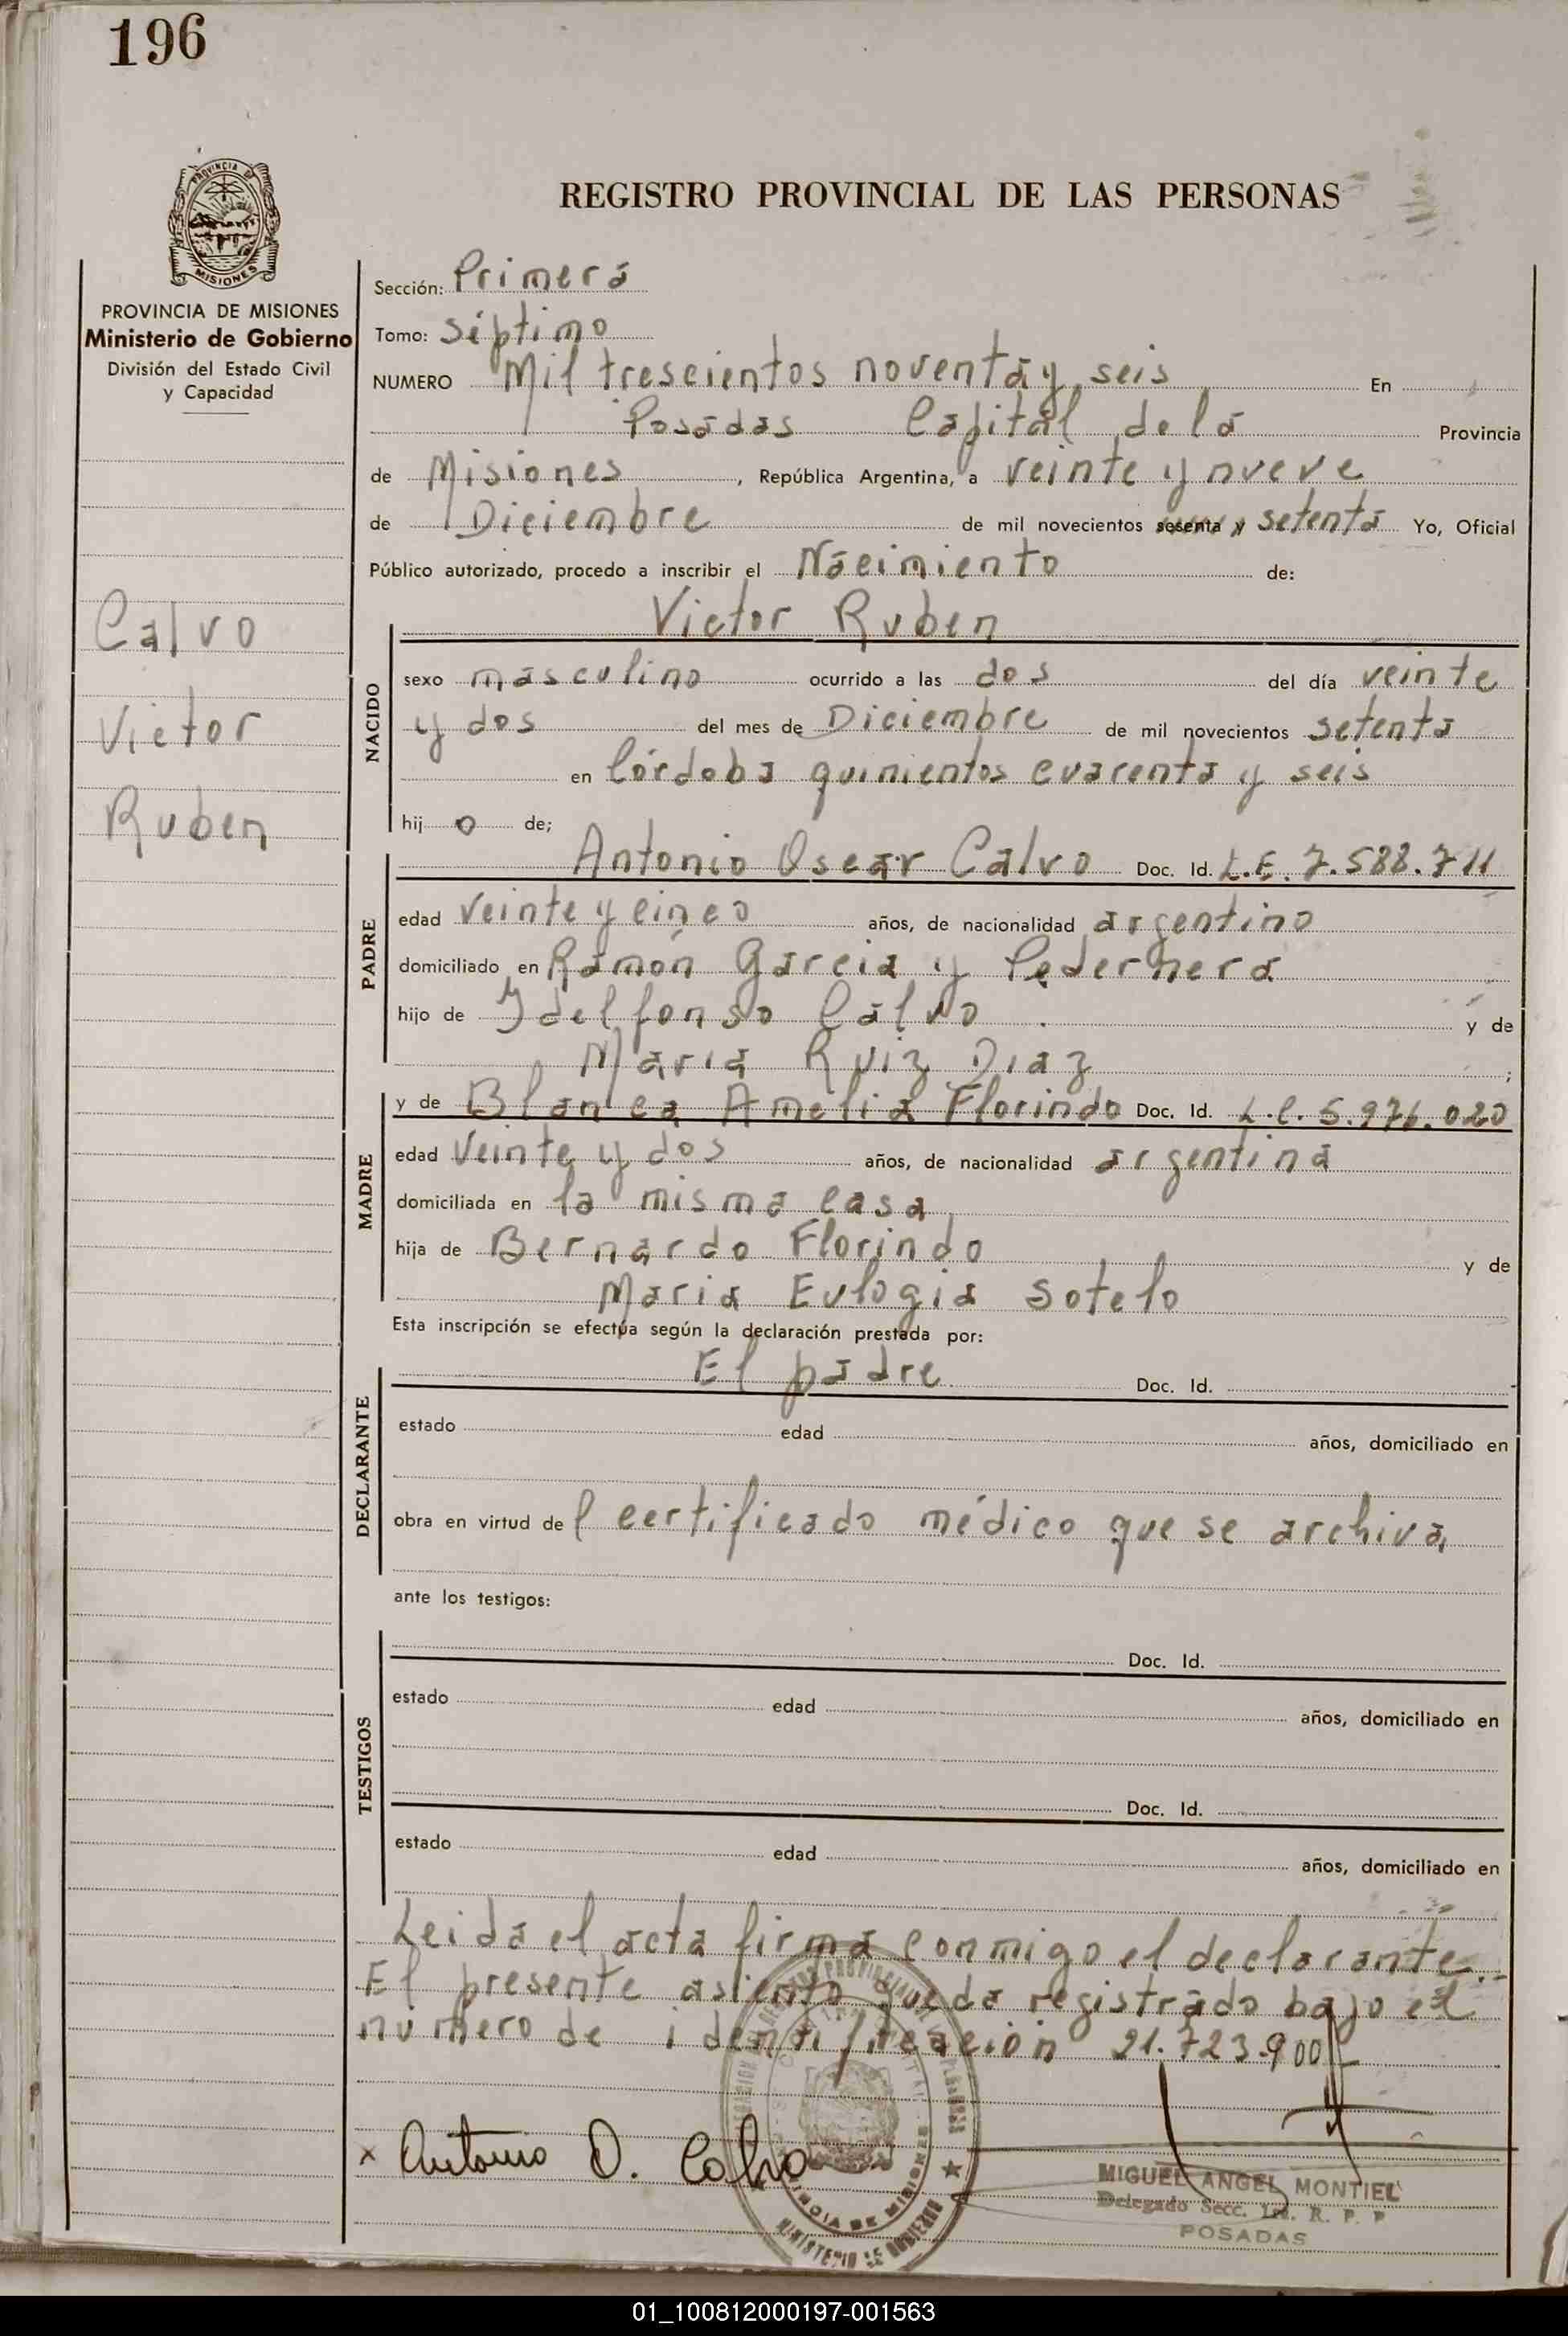 196
REGISTRO PROVINCIAL DE LAS PERSONAS
PROVINCIA DE MISIONES
Ministerio de Gobierno
División del Estado Civil
y Capacidad
Calvo
Victor
Ruben
Sección: Primera
Tomo: Séptimo
NUMERO Mil trescientos noventa y seis En
Posadas Capital de la Provincia
de Misiones, República Argentina, a veinte y nueve
de Diciembre de mil novecientos sesenta y setenta Yo, Oficial
Público autorizado, procedo a inscribir el Nacimiento de:
Victor Ruben
NACIDO
sexo masculino ocurrido a las dos del día veinte
y dos del mes de Diciembre de mil novecientos setenta
en Córdoba quinientos cuarenta y seis
hij o de;
Antonio Oscar Calvo Doc. Id. L.E. 7.588.711
PADRE
edad veinte y cinco años, de nacionalidad argentino
domiciliado en Ramón Garcia y Pedernera
hijo de Ydelfonso Calvo y de
Maria Ruiz Diaz ;
y de Blanca Amelia Florindo Doc. Id. L.C. 5.976.020
MADRE
edad veinte y dos años, de nacionalidad argentina
domiciliada en la misma casa
hija de Bernardo Florindo y de
Maria Eulogia Sotelo
Esta inscripción se efectúa según la declaración prestada por:
El padre Doc. Id.
DECLARANTE
estado edad años, domiciliado en
obra en virtud del certificado médico que se archiva
ante los testigos:
Doc. Id.
TESTIGOS
estado edad años, domiciliado en
Doc. Id.
estado edad años, domiciliado en
Leida el acta firma conmigo el declarante.-
El presente asiento queda registrado bajo el
número de identificación 21.723.900.-
x Antonio O. Calvo
MIGUEL ANGEL MONTIEL
Delegado Secc. 1ra. R. P. P
POSADAS
MINISTERIO DE GOBIERNO
PROVINCIA DE MISIONES
01_100812000197-001563